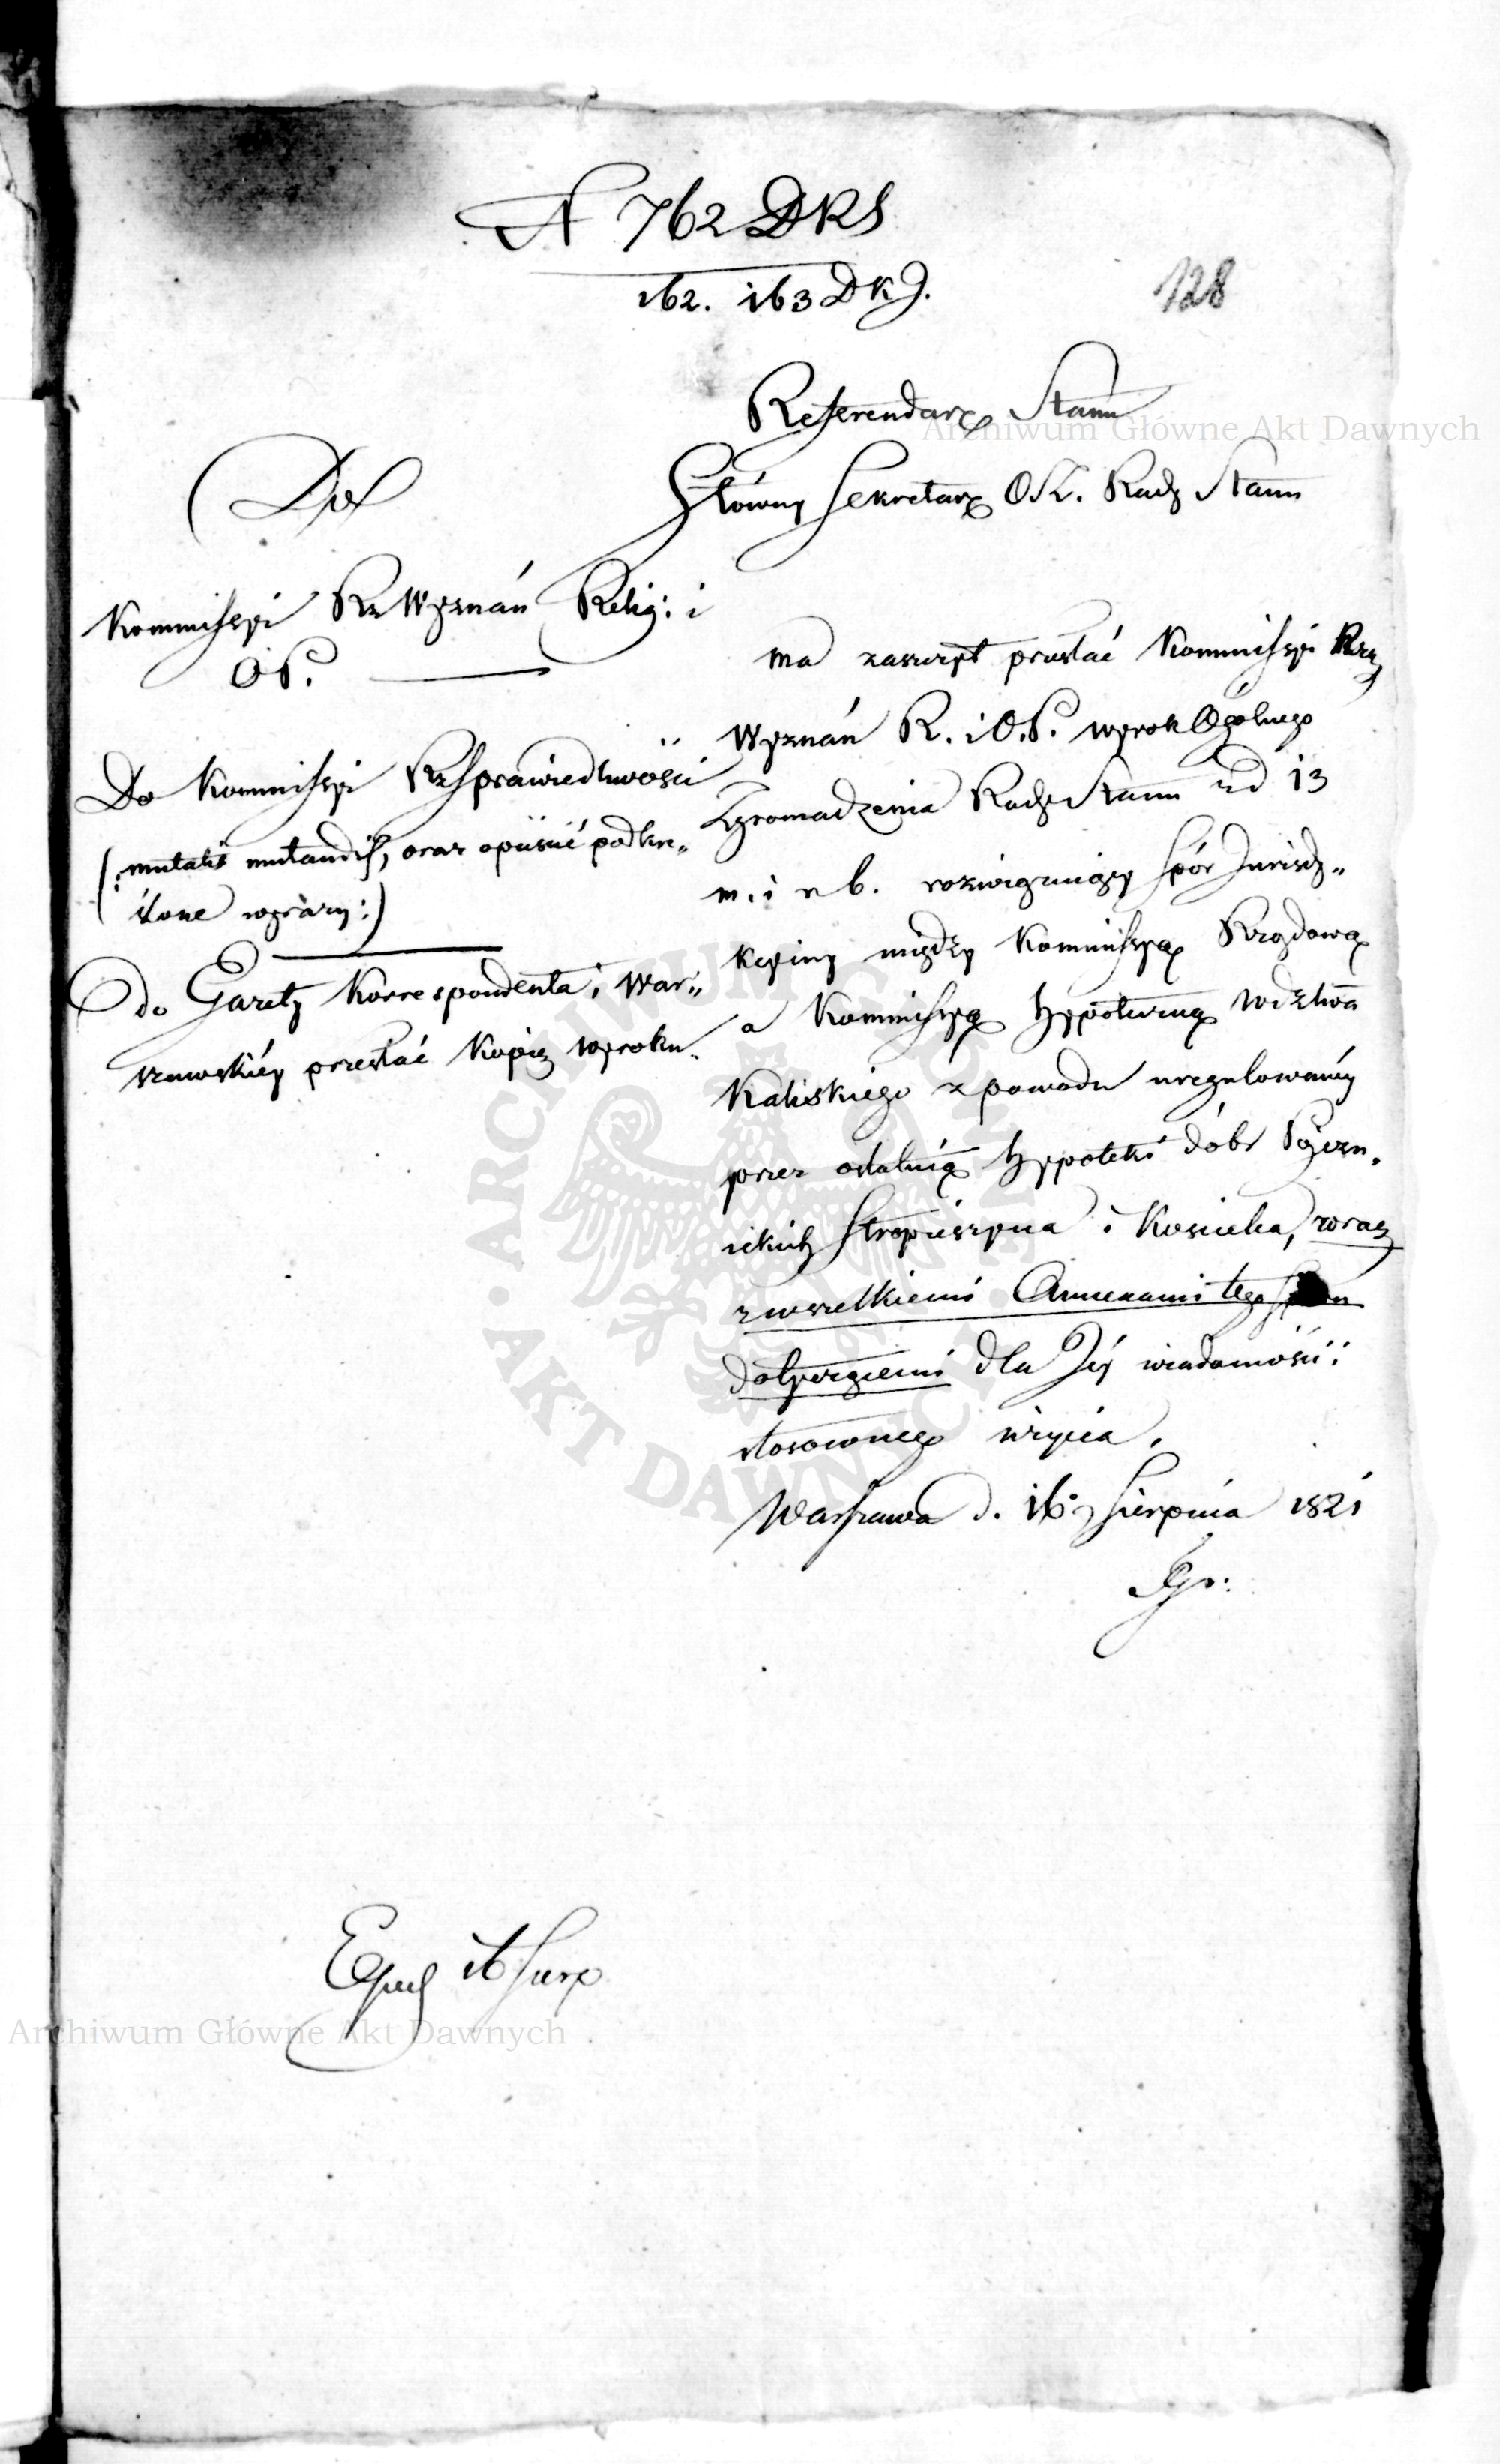 N 762 DRS
162. 163 DKJ.
128
Referendarz Stanu
Główny Sekretarz Rady Stanu
Do
Kommissyi Rz Wyznań Relig: i
O P.
Do Kommissyi Rz Sprawiedliwości
(: mutatis mutandis, oraz opuścić podkre„
ślone wyrazy :)
do Gazety Korrespondenta i War„
szawskiéy przesłać kopię wyroku.
ma zaszczyt przesłać Kommissyi Rzą
Wyznań R. i O. P. wyrok Ogólnego
Zgromadzenia Rady Stanu z d 13
m. i r b. rozwiązuiący spór Jurisdy„
kcyiny między Kommissyą Rządową
a Kommissyą hypoteczną Wdztwa
Kaliskiego z powodu uregulowanéy
przez ostatnią hypoteki dóbr
ickich Stropieszyna i Koscielca, wraz
z wszelkiemi Annexami tego
dotyczącemi dla Jéy wiadomości i
stosownego użycia.
Warszawa d. 16 Sierpnia 1821
Exped 16 Sierp
Archiwum Główne Akt Dawnych
Archiwum Główne Akt Dawnych
ARCHIWUM GŁÓWNE AKT DAWNYCH